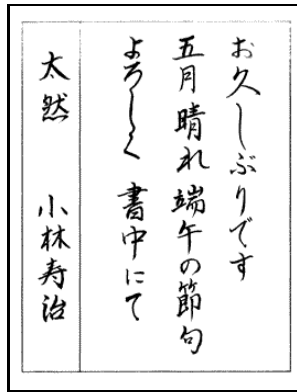 お久しぶりです
五月晴れ端午の節句
よろしく 書中にて
太然 小林寿治